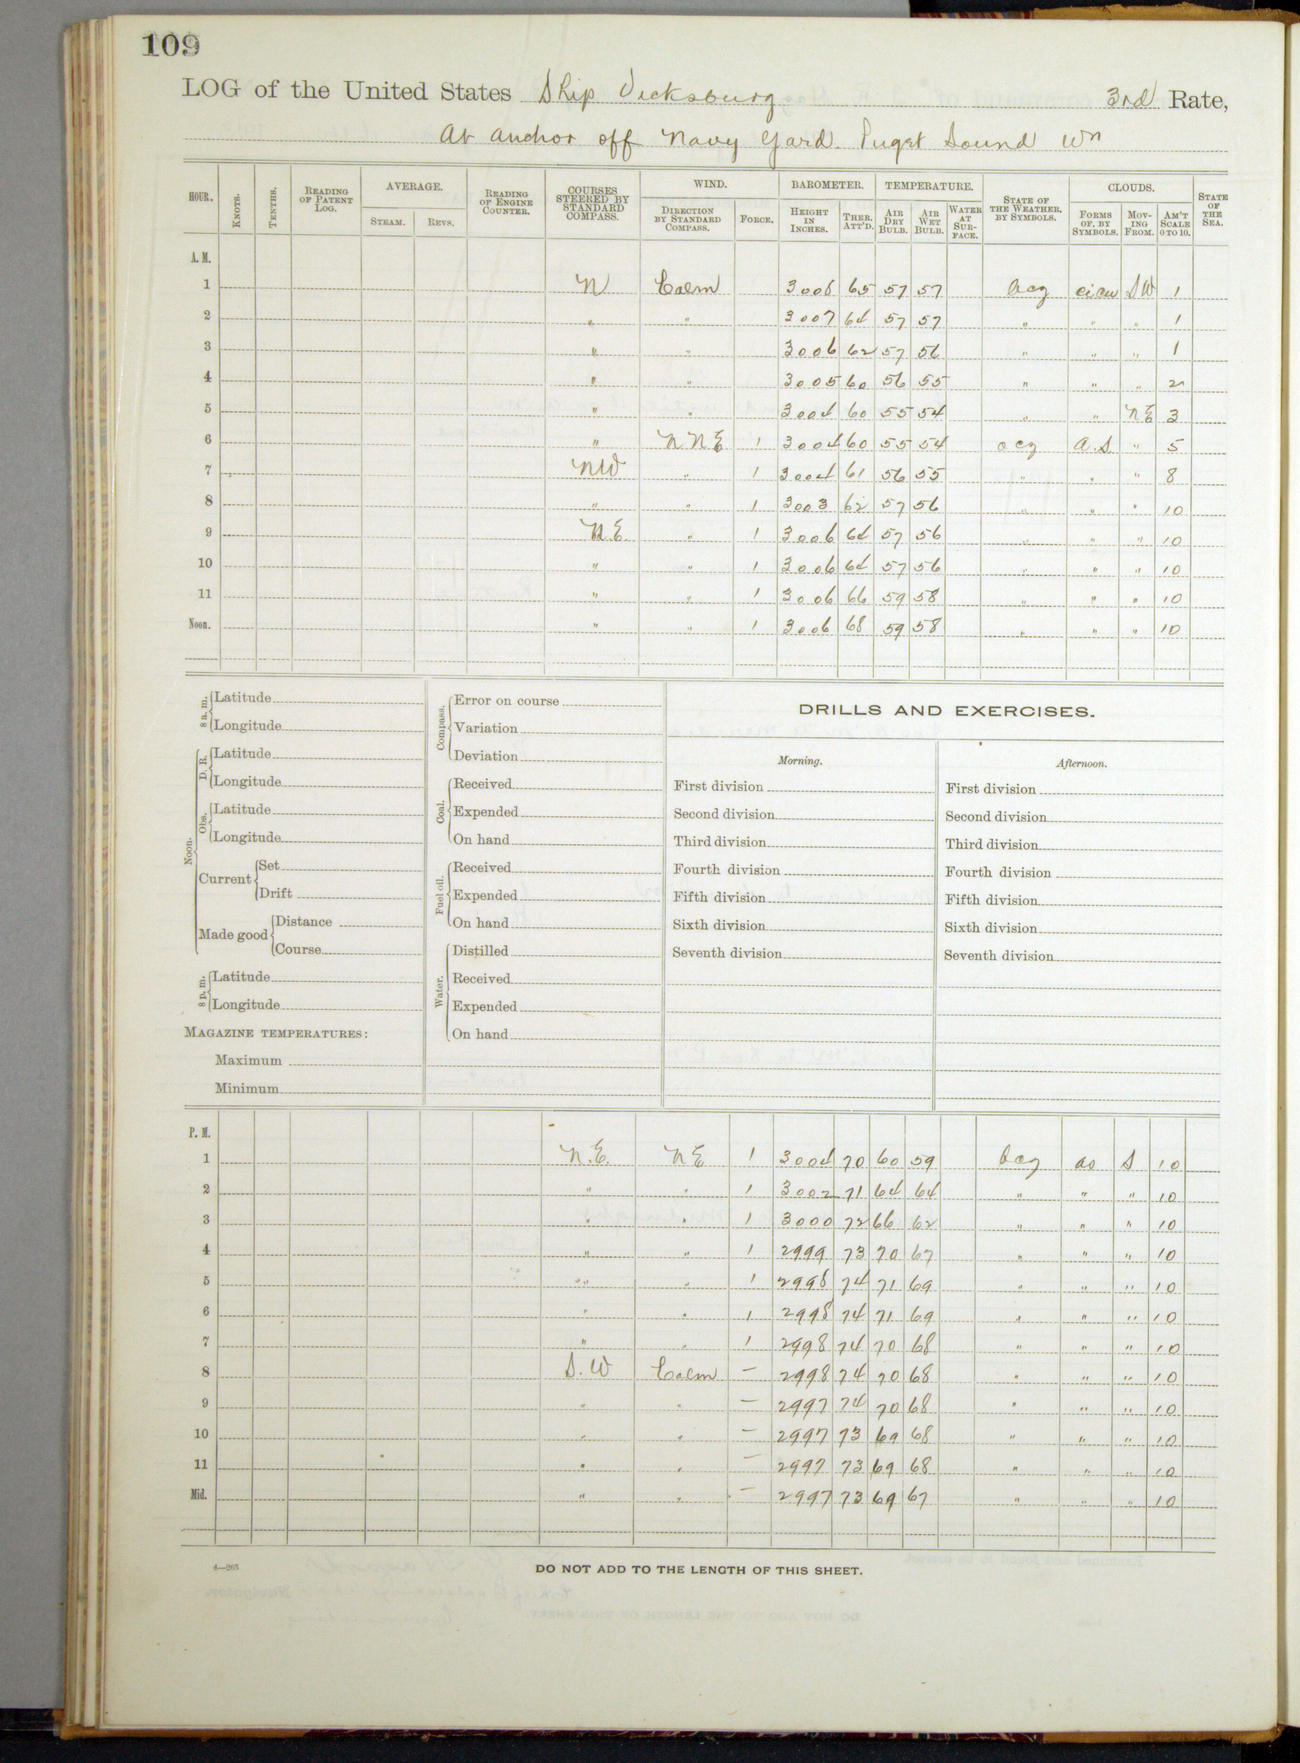 109
LOG of the United States Ship Vicksburg 3rd Rate,
At anchor off Navy Yard. Puget Sound Wn
HOUR. KNOTS. TENTHS. READING OF PATENT LOG. AVERAGE. STEAM. REVS. READING OF ENGINE COUNTER. COURSES STEERED BY STANDARD COMPASS. WIND. DIRECTION BY STANDARD COMPASS. FORCE. BAROMETER. HEIGHT IN INCHES. THER. ATT'D. TEMPERATURE. AIR DRY BULB. AIR WET BULB. WATER AT SURFACE. STATE OF THE WEATHER, BY SYMBOLS. CLOUDS. FORMS OF, BY SYMBOLS. MOVING FROM. AM'T SCALE 0 TO 10. STATE OF THE SEA.
A. M.
1 N Calm 3008 65 57 57 bcg cicu SW 1
2 " " 3007 64 57 57 " " " 1
3 " " 3006 62 57 56 " " " 1
4 " " 3005 60 56 55 " " " 2
5 " " 3004 60 55 54 " " NE 3
6 " NNE 1 3004 60 55 54 ocg A.S. " 5
7 NW " 1 3004 61 56 55 " " " 8
8 " " 1 3003 62 57 56 " " " 10
9 N.E. " 1 3006 64 57 56 " " " 10
10 " " 1 3006 64 57 56 " " " 10
11 " " 1 3006 66 59 58 " " " 10
Noon. " " 1 3006 68 59 58 " " " 10
8 a. m. Latitude
Longitude
Noon. D. R. Latitude
Longitude
Obs. Latitude
Longitude
Current Set
Drift
Made good Distance
Course
8 p. m. Latitude
Longitude
MAGAZINE TEMPERATURES:
Maximum
Minimum
Compass. Error on course
Variation
Deviation
Coal. Received
Expended
On hand
Fuel oil. Received
Expended
On hand
Water. Distilled
Received
Expended
On hand
DRILLS AND EXERCISES.
Morning.
First division
Second division
Third division
Fourth division
Fifth division
Sixth division
Seventh division
Afternoon.
First division
Second division
Third division
Fourth division
Fifth division
Sixth division
Seventh division
P. M.
1 N.E. NE 1 3004 70 60 59 bcg as S 10
2 " " 1 3002 71 64 64 " " " 10
3 " " 1 3000 72 66 62 " " " 10
4 " " 1 2999 73 70 67 " " " 10
5 " " 1 2998 74 71 69 " " " 10
6 " " 1 2998 74 71 69 " " " 10
7 " " 1 2998 74 70 68 " " " 10
8 S.W Calm — 2998 74 70 68 " " " 10
9 " " — 2997 74 70 68 " " " 10
10 " " — 2997 73 69 68 " " " 10
11 " " — 2997 73 69 68 " " " 10
Mid. " " — 2997 73 69 67 " " " 10
4—265
DO NOT ADD TO THE LENGTH OF THIS SHEET.